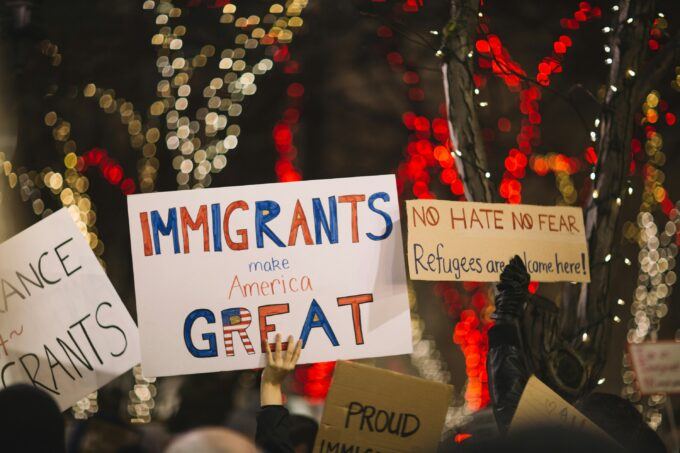 ANCE
IMMIGRANTS
make
America
GREAT
NO HATE NO FEAR
Refugees are come here!
PROUD